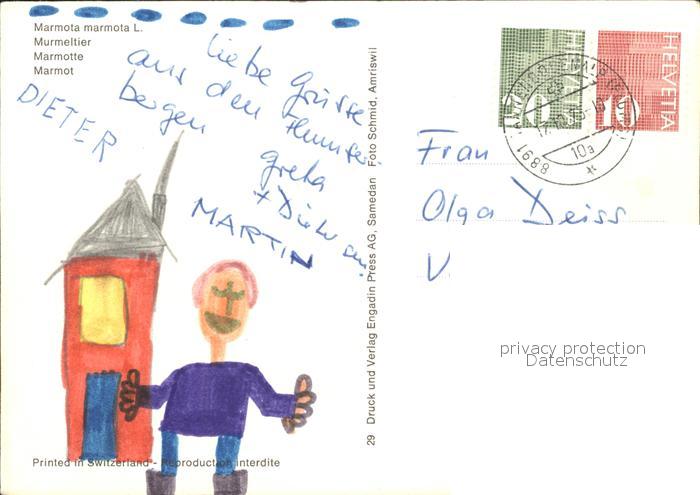 Marmota marmota L.
Murmeltier
Marmotte
Marmot
liebe Grüsse
aus den
bergen
Greta
+ Dieter
DIETER
MARTIN
Printed in Switzerland - Reproduction interdite
29 Druck und Verlag Engadin Press AG, Samedan Foto Schmid, Amriswil
HELVETIA
10
HELVETIA
8891
10a
Frau
Olga Deiss
V
privacy protection
Datenschutz